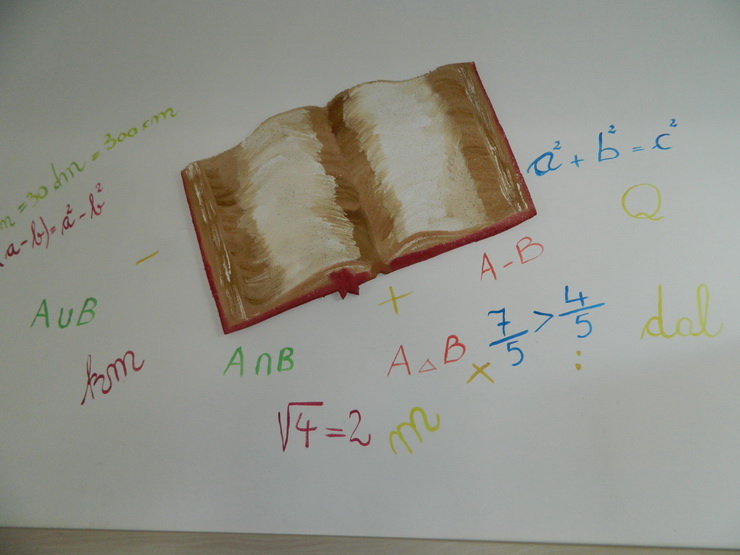 m = 30 dm = 300 cm
(a-b) = a² - b²
a² + b² = c²
Q
-
A-B
+
A∪B
7/5 > 4/5
dal
km
A∩B
A△B
×
:
√4 = 2
m